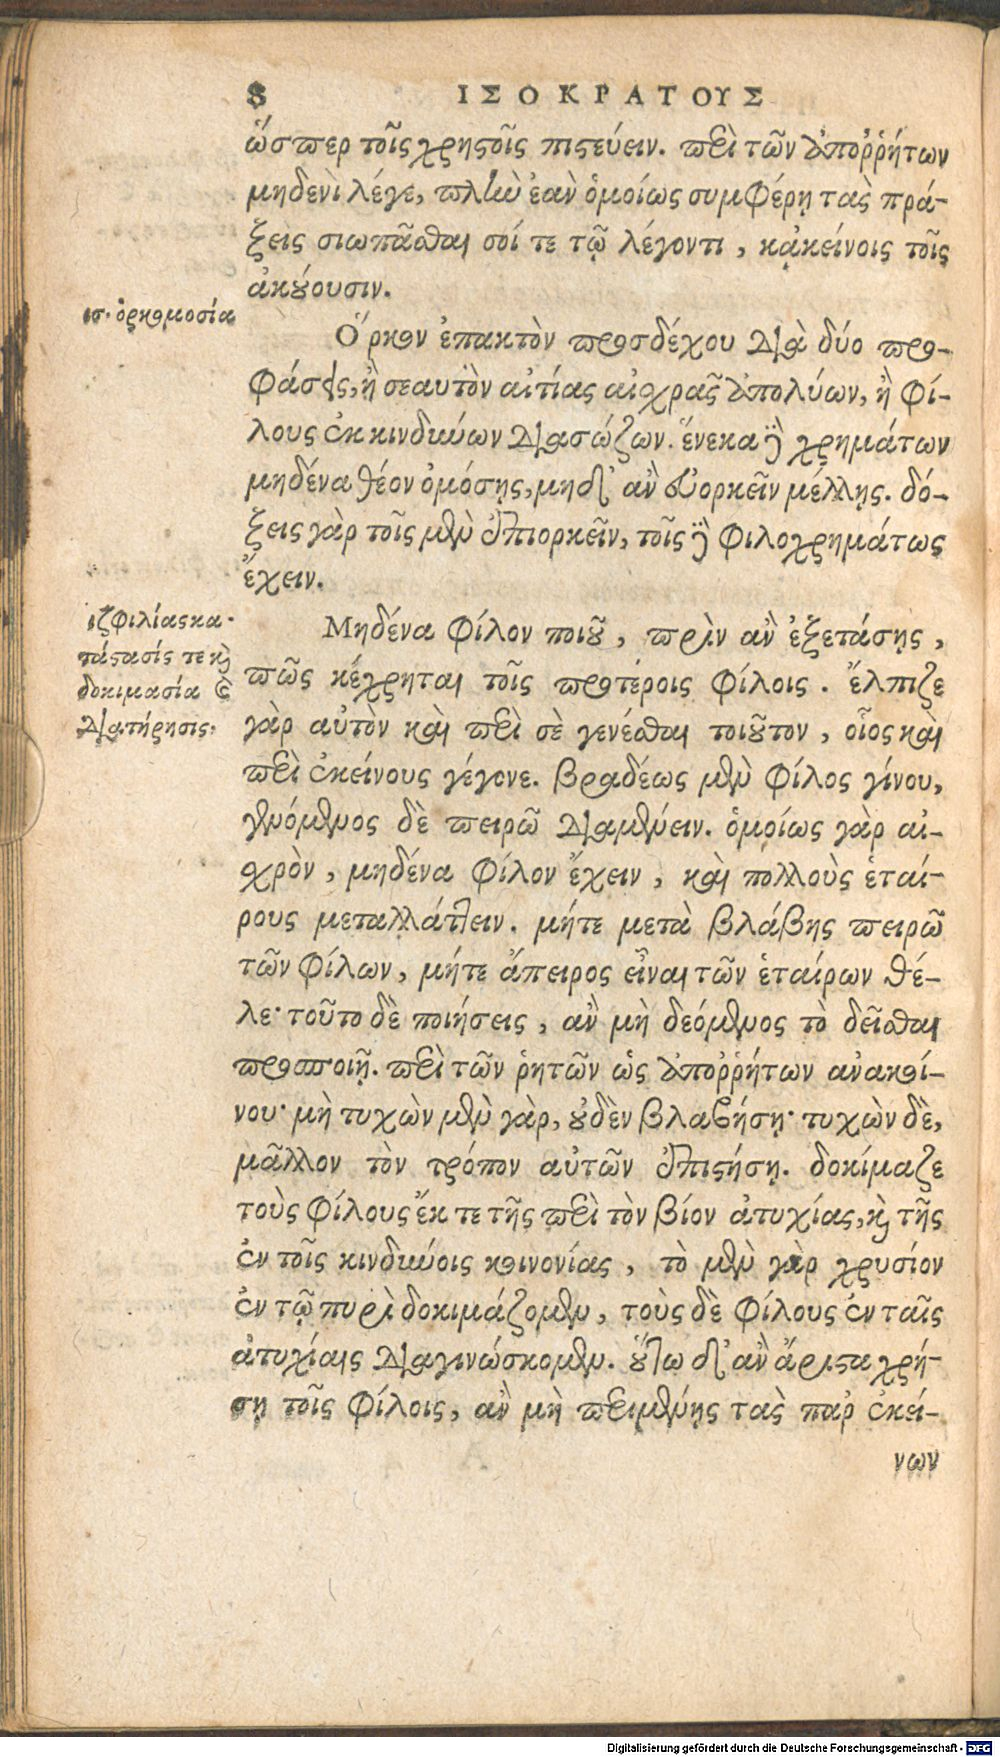 8 ΙΣΟΚΡΑΤΟΥΣ
ὥσπερ τοῖς χρηστοῖς πιστεύειν. περὶ τῶν ἀποῤῥήτων
μηδενὶ λέγε, πλὴν ἐὰν ὁμοίως συμφέρῃ τὰς πρά-
ξεις σιωπᾶσθαι σοί τε τῷ λέγοντι, κᾀκείνοις τοῖς
ἀκούουσιν.
ις. ὁρκωμοσία
Ὅρκον ἐπακτὸν προσδέχου διὰ δύο προ-
φάσεις, ἢ σεαυτὸν αἰτίας αἰσχρᾶς ἀπολύων, ἢ φί-
λους ἐκ κινδύνων διασώζων. ἕνεκα δὲ χρημάτων
μηδένα θέον ὀμόσῃς, μηδ' ἂν εὐορκεῖν μέλλῃς. δό-
ξεις γὰρ τοῖς μὲν ἐπιορκεῖν, τοῖς δὲ φιλοχρημάτως
ἔχειν.
ιζ φιλίας κα-
τάστασίς τε καὶ
δοκιμασία καὶ
διατήρησις.
Μηδένα φίλον ποιοῦ, πρὶν ἂν ἐξετάσῃς,
πῶς κέχρηται τοῖς προτέροις φίλοις. ἔλπιζε
γὰρ αὐτὸν καὶ περὶ σὲ γενέσθαι τοιοῦτον, οἷος καὶ
περὶ ἐκείνους γέγονε. βραδέως μὲν φίλος γίνου,
γενόμενος δὲ πειρῶ διαμένειν. ὁμοίως γὰρ αἰ-
σχρὸν, μηδένα φίλον ἔχειν, καὶ πολλοὺς ἑταί-
ρους μεταλλάττειν. μήτε μετὰ βλάβης πειρῶ
τῶν φίλων, μήτε ἄπειρος εἶναι τῶν ἑταίρων θέ-
λε· τοῦτο δὲ ποιήσεις, ἂν μὴ δεόμενος τὸ δεῖσθαι
προσποιῇ. περὶ τῶν ῥητῶν ὡς ἀποῤῥήτων ἀνακοί-
νου· μὴ τυχὼν μὲν γὰρ, οὐδὲν βλαβήσῃ· τυχὼν δὲ,
μᾶλλον τὸν τρόπον αὐτῶν ἐπιστήσῃ. δοκίμαζε
τοὺς φίλους ἔκ τε τῆς περὶ τὸν βίον ἀτυχίας, καὶ τῆς
ἐν τοῖς κινδύνοις κοινονίας, τὸ μὲν γὰρ χρυσίον
ἐν τῷ πυρὶ δοκιμάζομεν, τοὺς δὲ φίλους ἐν ταῖς
ἀτυχίαις διαγινώσκομεν. οὕτω δ' ἂν ἄριστα χρή-
σῃ τοῖς φίλοις, ἂν μὴ περιμένῃς τὰς παρ' ἐκεί-
νων
Digitalisierung gefördert durch die Deutsche Forschungsgemeinschaft - DFG